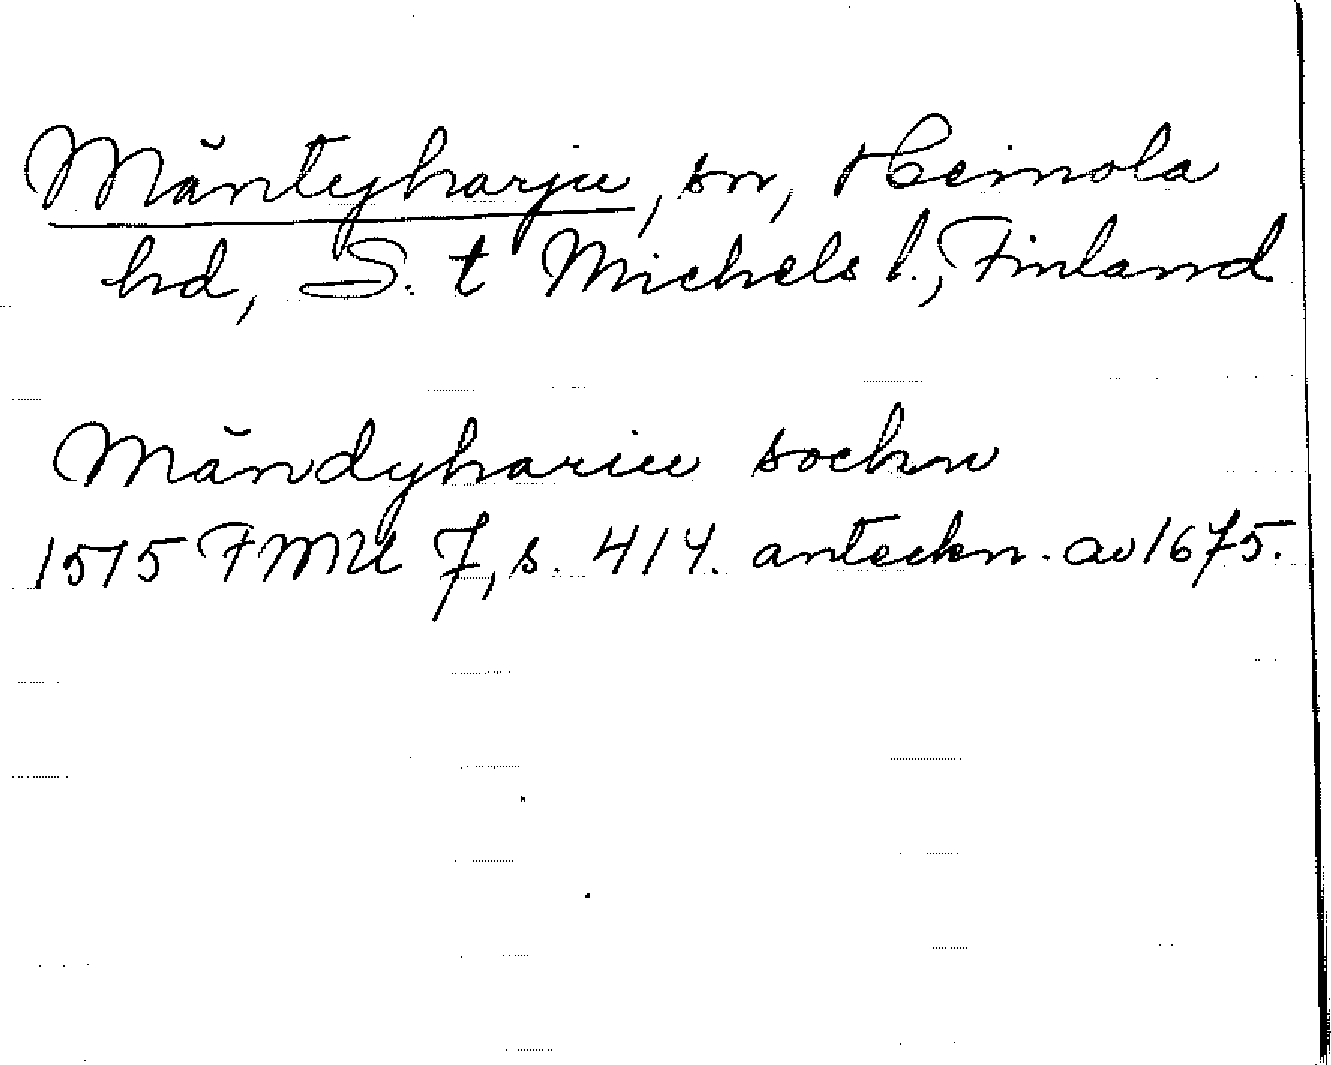 Mäntyharju, sn, Heinola
hd, S. t Michels l., Finland
Mändyhariu sockn
1515 FMU 7, s. 414. anteckn. av 1675.